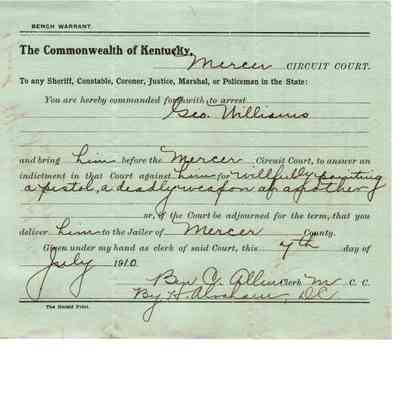 BENCH WARRANT.
The Commonwealth of Kentucky,
Mercer CIRCUIT COURT.
To any Sheriff, Constable, Coroner, Justice, Marshal, or Policeman in the State:
You are hereby commanded forthwith to arrest
Geo. Williams
and bring him before the Mercer Circuit Court, to answer an
indictment in that Court against him for willfully pointing
a pistol, a deadly weapon at another
or, if the Court be adjourned for the term, that you
deliver him to the Jailer of Mercer County.
Given under my hand as clerk of said Court, this 7th day of
July 1910
Ben C. Allen Clerk M C. C.
By H D.C.
The Herald Print.